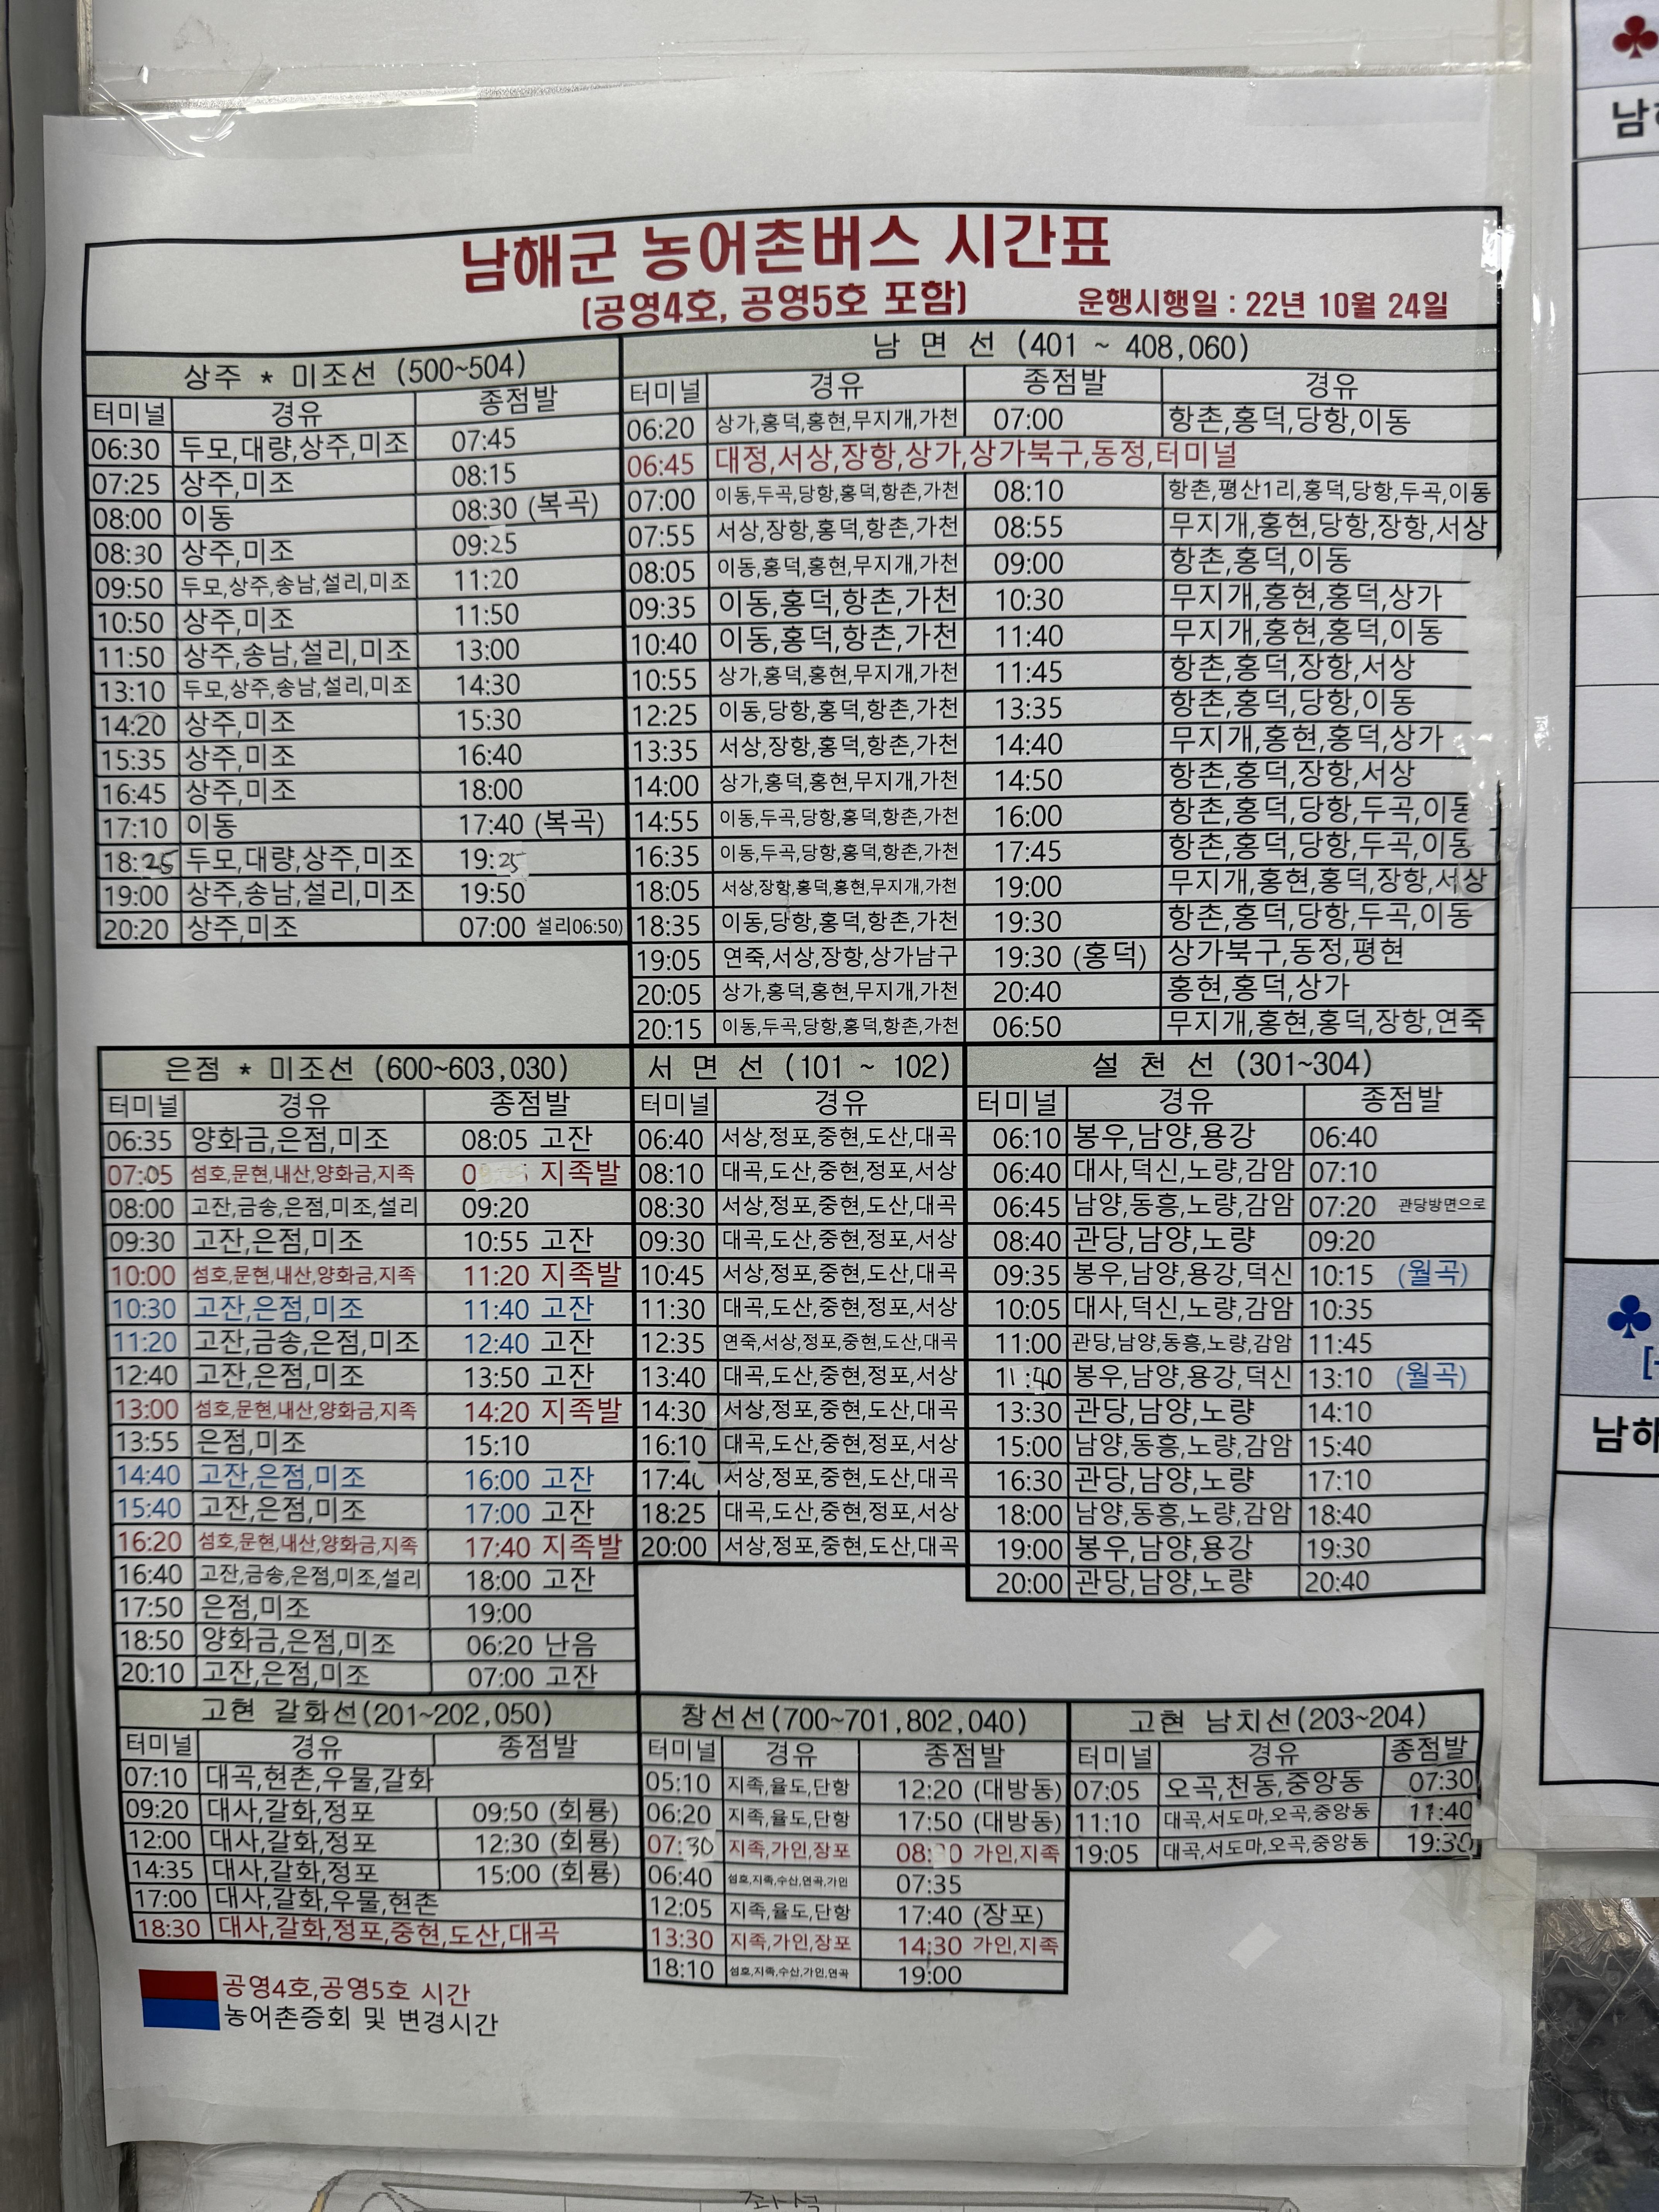 남해군 농어촌버스 시간표
(공영4호, 공영5호 포함)
운행시행일 : 22년 10월 24일
상주 * 미조선 (500~504)
터미널 경유 종점발
06:30 두모,대량,상주,미조 07:45
07:25 상주,미조 08:15
08:00 이동 08:30 (복곡)
08:30 상주,미조 09:25
09:50 두모,상주,송남,설리,미조 11:20
10:50 상주,미조 11:50
11:50 상주,송남,설리,미조 13:00
13:10 두모,상주,송남,설리,미조 14:30
14:20 상주,미조 15:30
15:35 상주,미조 16:40
16:45 상주,미조 18:00
17:10 이동 17:40 (복곡)
18:25 두모,대량,상주,미조 19:25
19:00 상주,송남,설리,미조 19:50
20:20 상주,미조 07:00 설리06:50)
남 면 선 (401 ~ 408,060)
터미널 경유 종점발 경유
06:20 상가,홍덕,홍현,무지개,가천 07:00 항촌,홍덕,당항,이동
06:45 대정,서상,장항,상가,상가북구,동정,터미널
07:00 이동,두곡,당항,홍덕,항촌,가천 08:10 항촌,평산1리,홍덕,당항,두곡,이동
07:55 서상,장항,홍덕,항촌,가천 08:55 무지개,홍현,당항,장항,서상
08:05 이동,홍덕,홍현,무지개,가천 09:00 항촌,홍덕,이동
09:35 이동,홍덕,항촌,가천 10:30 무지개,홍현,홍덕,상가
10:40 이동,홍덕,항촌,가천 11:40 무지개,홍현,홍덕,이동
10:55 상가,홍덕,홍현,무지개,가천 11:45 항촌,홍덕,장항,서상
12:25 이동,당항,홍덕,항촌,가천 13:35 항촌,홍덕,당항,이동
13:35 서상,장항,홍덕,항촌,가천 14:40 무지개,홍현,홍덕,상가
14:00 상가,홍덕,홍현,무지개,가천 14:50 항촌,홍덕,장항,서상
14:55 이동,두곡,당항,홍덕,항촌,가천 16:00 항촌,홍덕,당항,두곡,이동
16:35 이동,두곡,당항,홍덕,항촌,가천 17:45 항촌,홍덕,당항,두곡,이동
18:05 서상,장항,홍덕,홍현,무지개,가천 19:00 무지개,홍현,홍덕,장항,서상
18:35 이동,당항,홍덕,항촌,가천 19:30 항촌,홍덕,당항,두곡,이동
19:05 연죽,서상,장항,상가남구 19:30 (홍덕) 상가북구,동정,평현
20:05 상가,홍덕,홍현,무지개,가천 20:40 홍현,홍덕,상가
20:15 이동,두곡,당항,홍덕,항촌,가천 06:50 무지개,홍현,홍덕,장항,연죽
은점 * 미조선 (600~603,030)
터미널 경유 종점발
06:35 양화금,은점,미조 08:05 고잔
07:05 섬호,문현,내산,양화금,지족 지족발
08:00 고잔,금송,은점,미조,설리 09:20
09:30 고잔,은점,미조 10:55 고잔
10:00 섬호,문현,내산,양화금,지족 11:20 지족발
10:30 고잔,은점,미조 11:40 고잔
11:20 고잔,금송,은점,미조 12:40 고잔
12:40 고잔,은점,미조 13:50 고잔
13:00 섬호,문현,내산,양화금,지족 14:20 지족발
13:55 은점,미조 15:10
14:40 고잔,은점,미조 16:00 고잔
15:40 고잔,은점,미조 17:00 고잔
16:20 섬호,문현,내산,양화금,지족 17:40 지족발
16:40 고잔,금송,은점,미조,설리 18:00 고잔
17:50 은점,미조 19:00
18:50 양화금,은점,미조 06:20 난음
20:10 고잔,은점,미조 07:00 고잔
서 면 선 (101 ~ 102)
터미널 경유
06:40 서상,정포,중현,도산,대곡
08:10 대곡,도산,중현,정포,서상
08:30 서상,정포,중현,도산,대곡
09:30 대곡,도산,중현,정포,서상
10:45 서상,정포,중현,도산,대곡
11:30 대곡,도산,중현,정포,서상
12:35 연죽,서상,정포,중현,도산,대곡
13:40 대곡,도산,중현,정포,서상
14:30 서상,정포,중현,도산,대곡
16:10 대곡,도산,중현,정포,서상
17:40 서상,정포,중현,도산,대곡
18:25 대곡,도산,중현,정포,서상
20:00 서상,정포,중현,도산,대곡
설 천 선 (301~304)
터미널 경유 종점발
06:10 봉우,남양,용강 06:40
06:40 대사,덕신,노량,감암 07:10
06:45 남양,동흥,노량,감암 07:20 관당방면으로
08:40 관당,남양,노량 09:20
09:35 봉우,남양,용강,덕신 10:15 (월곡)
10:05 대사,덕신,노량,감암 10:35
11:00 관당,남양,동흥,노량,감암 11:45
11:40 봉우,남양,용강,덕신 13:10 (월곡)
13:30 관당,남양,노량 14:10
15:00 남양,동흥,노량,감암 15:40
16:30 관당,남양,노량 17:10
18:00 남양,동흥,노량,감암 18:40
19:00 봉우,남양,용강 19:30
20:00 관당,남양,노량 20:40
고현 갈화선(201~202,050)
터미널 경유 종점발
07:10 대곡,현촌,우물,갈화
09:20 대사,갈화,정포 09:50 (회룡)
12:00 대사,갈화,정포 12:30 (회룡)
14:35 대사,갈화,정포 15:00 (회룡)
17:00 대사,갈화,우물,현촌
18:30 대사,갈화,정포,중현,도산,대곡
창선선(700~701,802,040)
터미널 경유 종점발
05:10 지족,율도,단항 12:20 (대방동)
06:20 지족,율도,단항 17:50 (대방동)
07:30 지족,가인,장포 가인,지족
06:40 섬호,지족,수산,연곡,가인 07:35
12:05 지족,율도,단항 17:40 (장포)
13:30 지족,가인,장포 14:30 가인,지족
18:10 섬호,지족,수산,가인,연곡 19:00
고현 남치선(203~204)
터미널 경유 종점발
07:05 오곡,천동,중앙동 07:30
11:10 대곡,서도마,오곡,중앙동 11:40
19:05 대곡,서도마,오곡,중앙동 19:30
공영4호,공영5호 시간
농어촌증회 및 변경시간